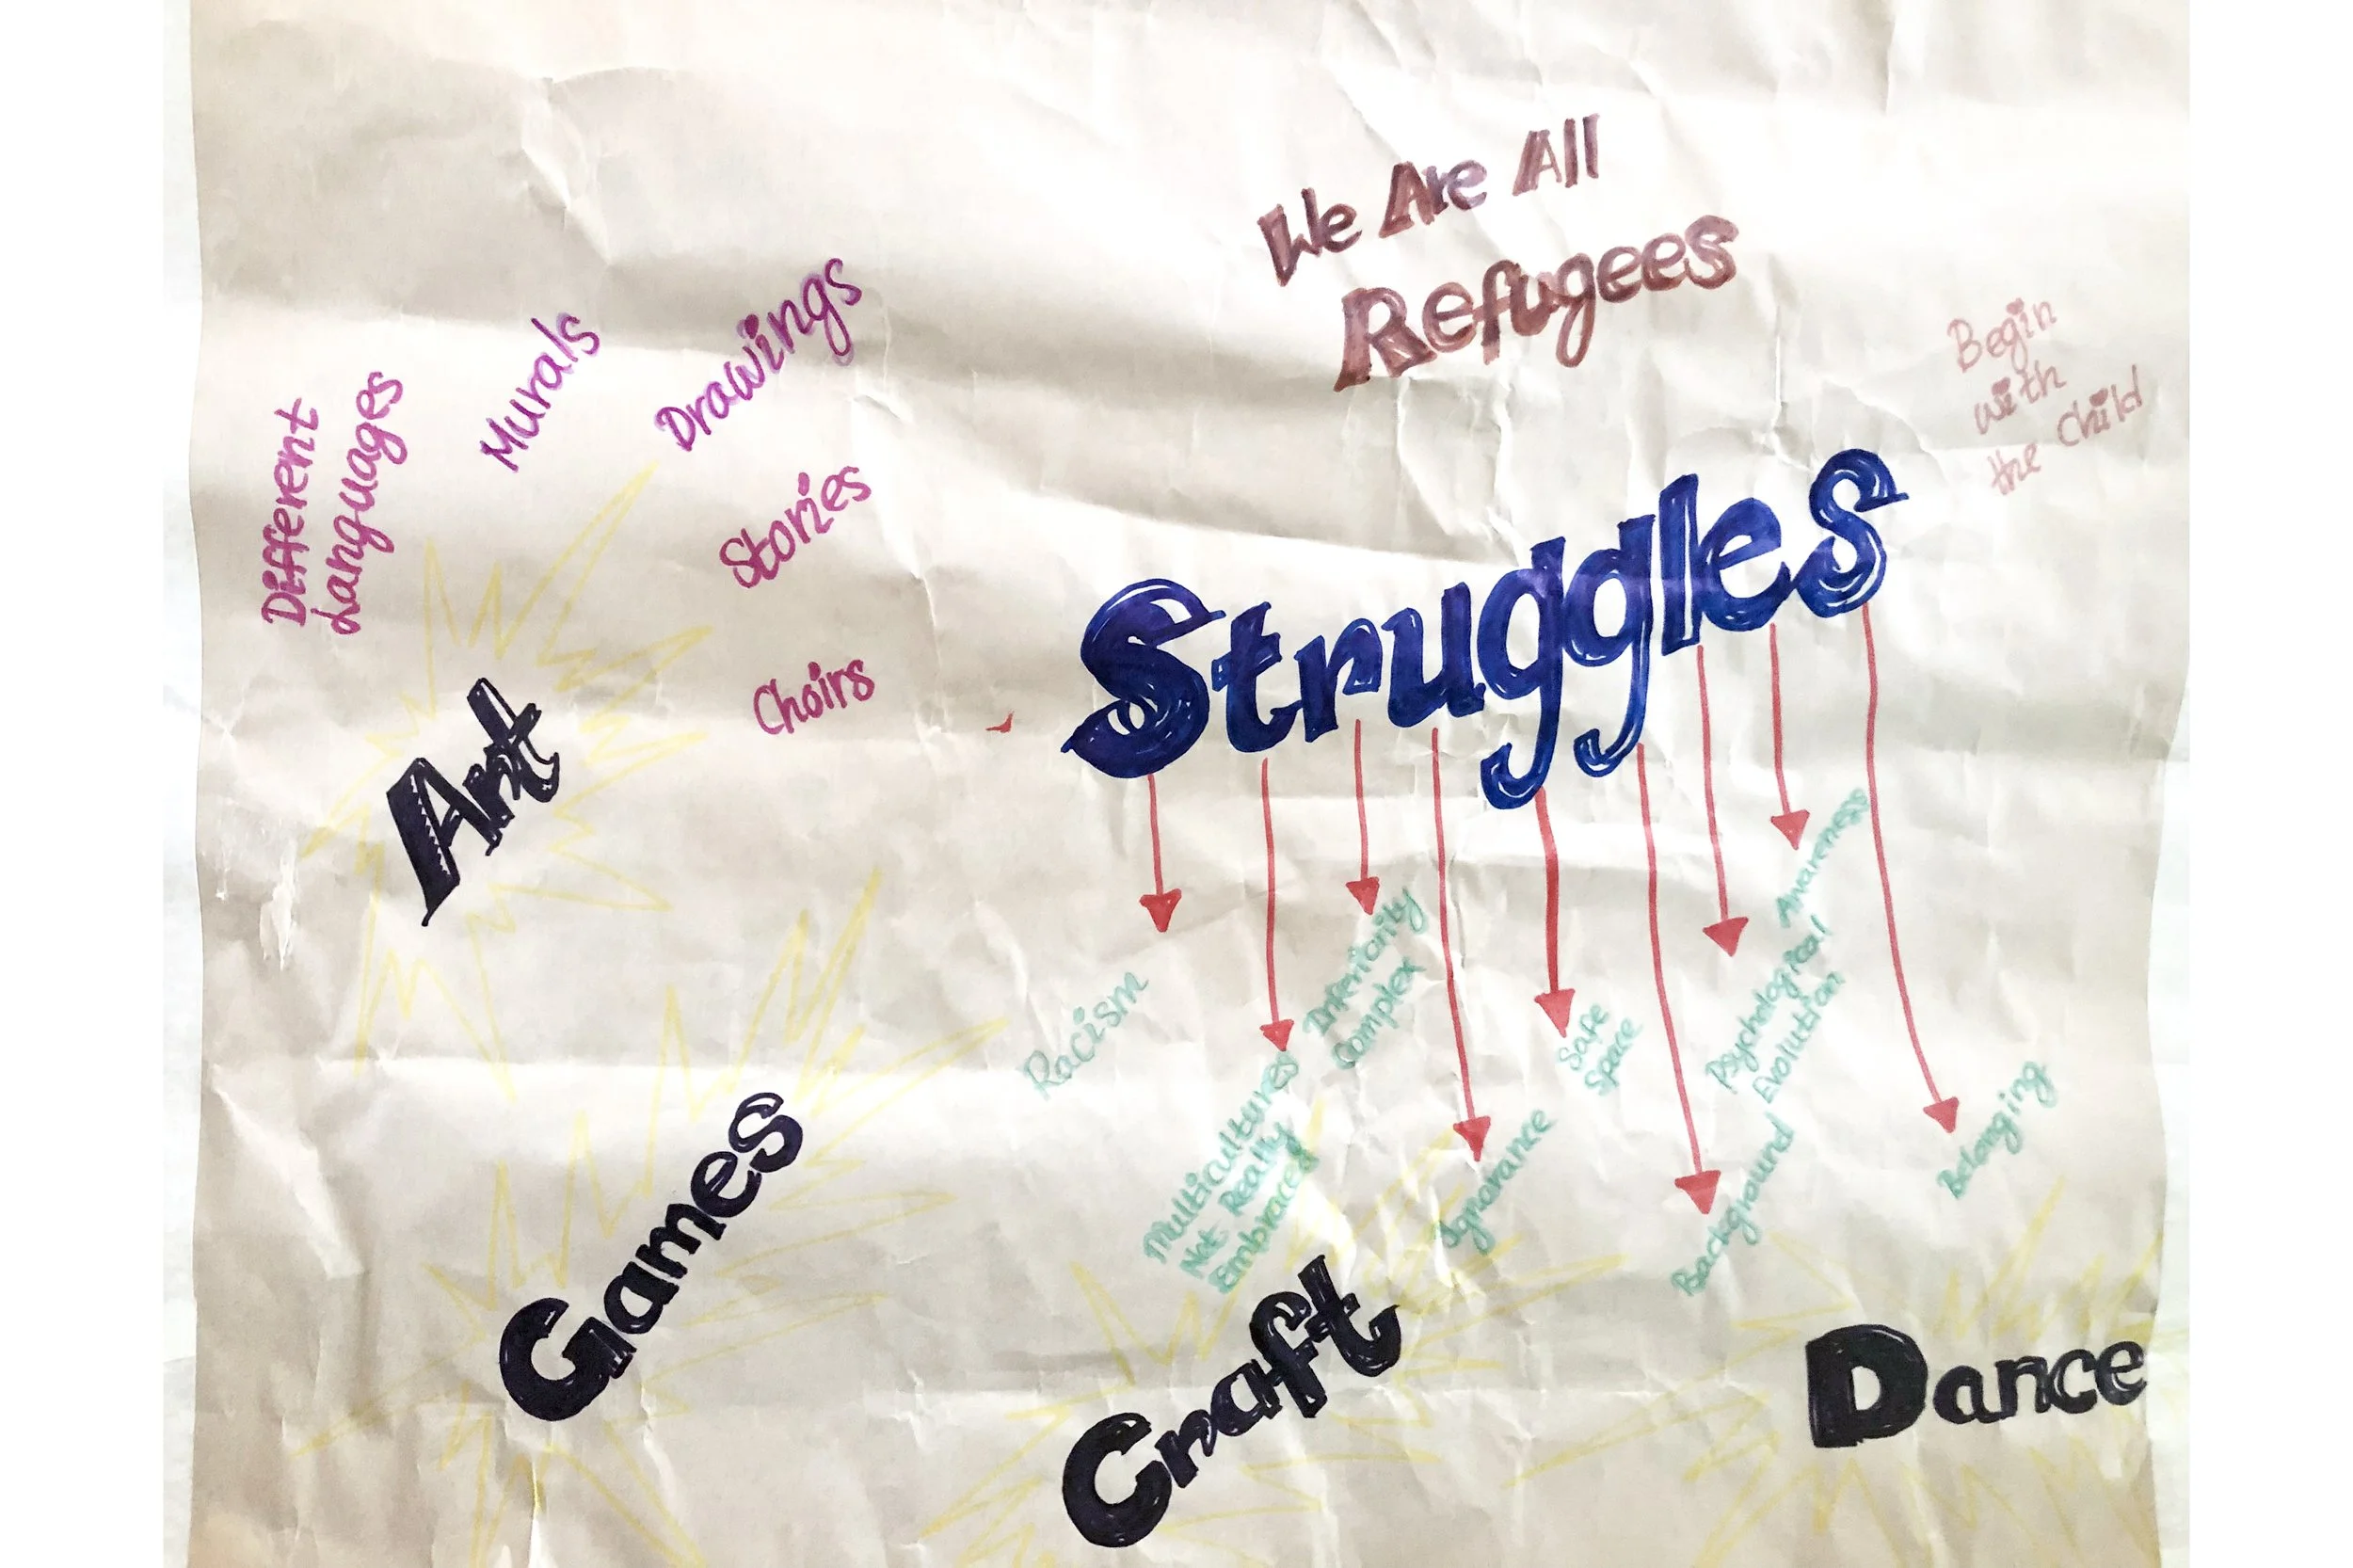 We Are All
Refugees
Begin
with
the Child
Different
Languages
Murals
Drawings
Stories
Choirs
Art
Struggles
Racism
Multicultures
Not Really
Embraced
Inferiority
Complex
Ignorance
Safe
Space
Background
Psychological
Evolution
Awareness
Belonging
Games
Craft
Dance